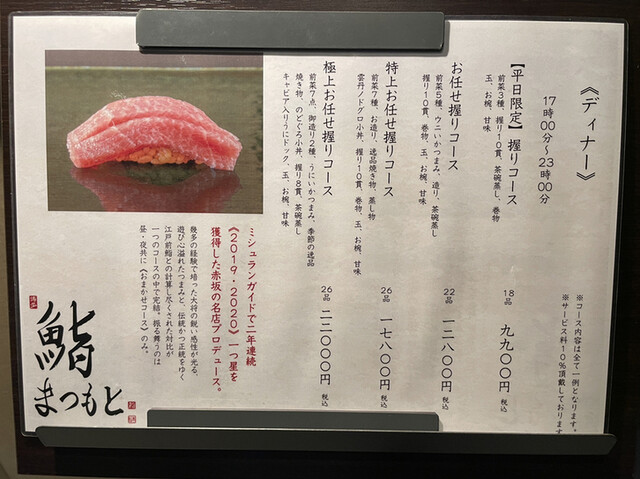 《ディナー》
17時00分～23時00分
※コース内容は全て一例となります。
※サービス料10％頂戴しております
【平日限定】握りコース
前菜3種、握り10貫、茶碗蒸し、巻物
玉、お椀、甘味
18品
九九〇〇円 税込
お任せ握りコース
前菜5種、ウニいかつまみ、造り、茶碗蒸し
握り10貫、巻物、玉、お椀、甘味
22品
一二八〇〇円 税込
特上お任せ握りコース
前菜7種、お造り、逸品焼き物、蒸し物
雲丹ノドグロ小丼、握り10貫、巻物、玉、お椀、甘味
26品
一七八〇〇円 税込
極上お任せ握りコース
前菜7点、御造り2種、うにいかつまみ、季節の逸品
焼き物、のどぐろ小丼、握り8貫、茶碗蒸し
キャビア入りうにドック、玉、お椀、甘味
26品
二二〇〇〇円 税込
ミシュランガイドで二年連続
《2019・2020》一つ星を
獲得した赤坂の名店プロデュース。
幾多の経験で培った大将の鋭い感性が光る、
遊び心溢れたつまみと、伝統かつ正統をゆく
江戸前鮨との計算し尽くされた対比が
一つのコースの中で完結。振る舞うのは
昼・夜共に《おまかせコース》のみ。
鮨
まつもと